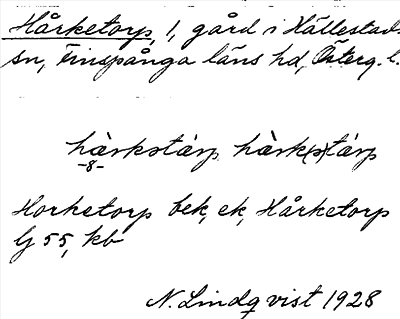 Hårketorp, 1, gård i Hällestads
sn, Finspånga läns hd, Österg. l.
hàrkətàrp, hàrk(ə)tàrp
-8-
Horketorp bek, ek, Hårketorp
Gj 55, kb
N. Lindqvist 1928